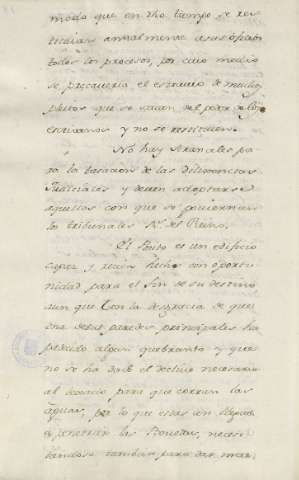 modo que en dho tiempo se res-
tituian annalmente a sus oficios
todos los procesos, por cuio medio
se precaveria el extravio de muchos
pleitos que se sacan del poder de los
escrivanos y no se restituien.
No hay Aranceles pa
ra la tasacion de las diligencias
Judiciales y deven adoptarse
aquellos con que se goviernan
los tribunales Rs. del Reino.
El Posito es un edificio
capaz y recien hecho con oportu
nidad para el fin de su destino
aun que con la desgracia de que
una de sus paredes principales ha
padecido algun quebranto y que
no se ha dado el declive necesario
al para que corran las
aguas, por lo que estas con
a penetrar las Bovedas, neces
tandose tambien para dar mas